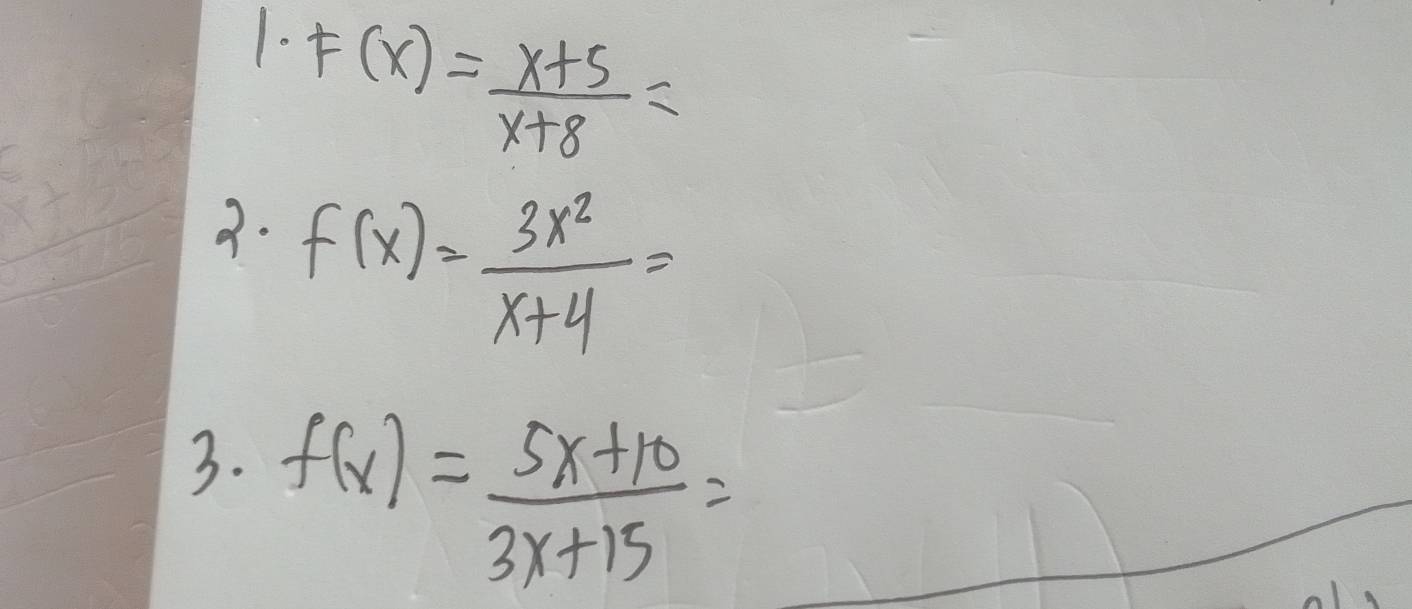 1. F(x) = x+5/x+8 =
2. f(x) = 3x²/x+4 =
3. f(x) = 5x+10/3x+15 =